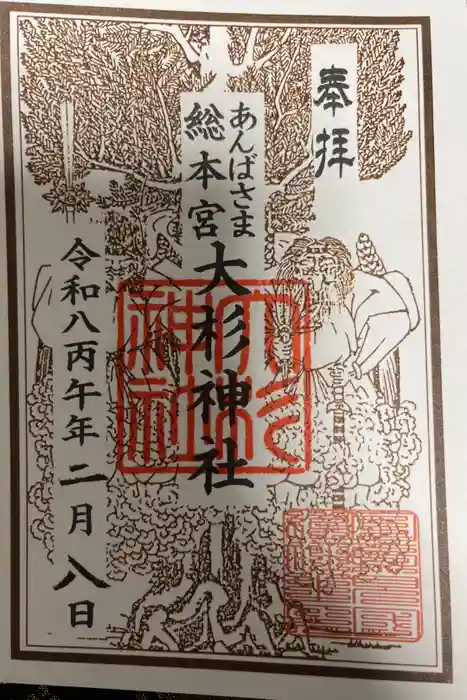 奉拝
あんばさま
総本宮
大杉神社
令和八丙午年二月八日
大杉
神社